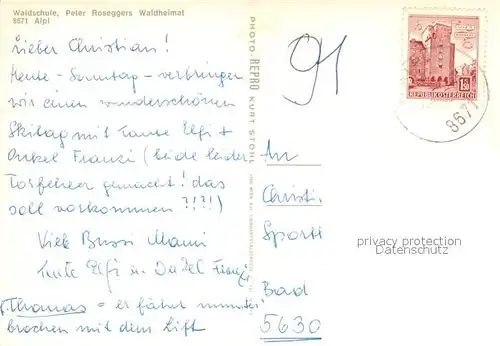 Waldschule, Peter Roseggers Waldheimat
8671 Alpl
Lieber Christian!
Heute - Sonntag - verbringen
wir einen wunderschönen
Skitag mit Tante Elfi +
Onkel Franzi (beide leider
Torfehler gemacht! das
soll vorkommen ?!?!)
Viele Bussi Mami
Tante Elfi u. Onkel Franzi
Thomas = er fährt
brochen mit dem Lift
PHOTO-REPRO KURT STOHL
91
REPUBLIK ÖSTERREICH
1.50
8671
An
Christi.
Sport
Bad
5630
privacy protection
Datenschutz